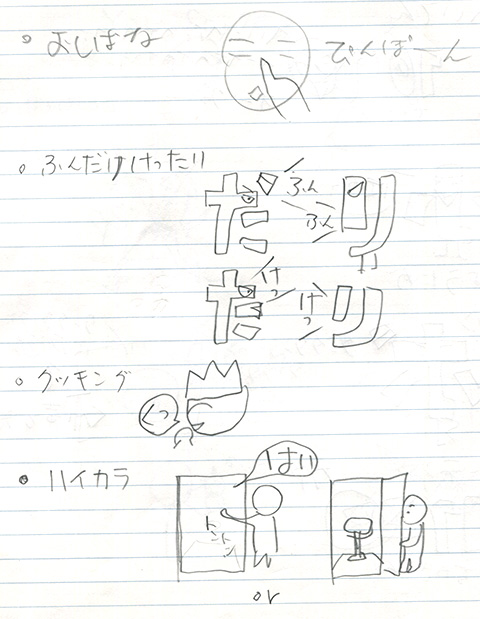 おしばな
ぴんぽーん
ふんだりけったり
だ ふん ふん リ
だ けっ けっ リ
クッキング
くっ
ハイカラ
はい
トントン
or